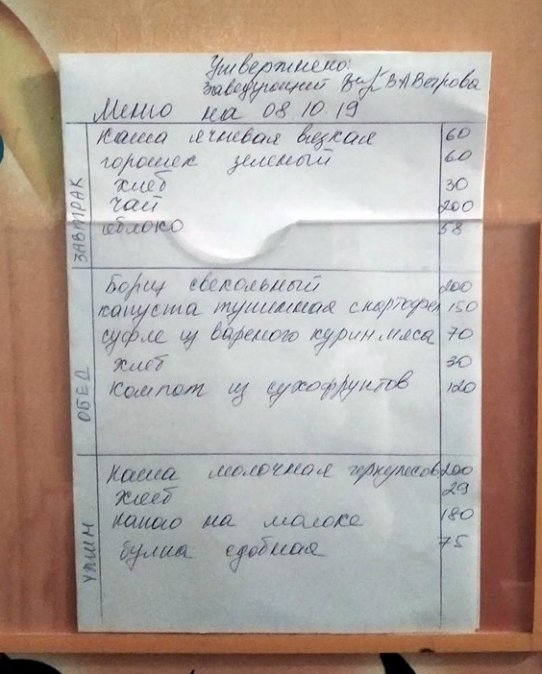 Утверждено:
Заведующий В.А.Ветрова
Меню на 08 10 19
ЗАВТРАК
каша ячневая вязкая 60
горошек зеленый 60
хлеб 30
чай 200
яблоко 58
ОБЕД
Борщ свекольный 200
капуста тушенная с картофел 150
суфле из вареного курин.мяса 70
хлеб 30
компот из сухофруктов 120
УЖИН
каша молочная геркулесов 200
хлеб 29
какао на молоке 180
булка сдобная 75